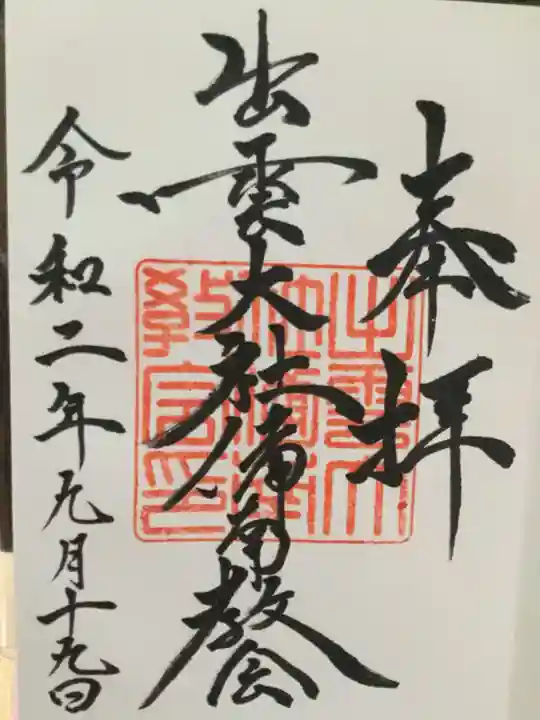 奉拝
出雲大社備南教会
令和二年九月十九日